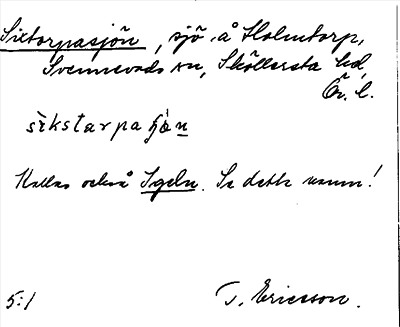 Sixtorpasjön, sjö å Holmtorp,
Svennevads sn, Sköllersta hd,
Ör. l.
sèkstarpaʃȯ̀n
Kallas också Igeln. Se detta namn!
5:1 T. Ericsson.